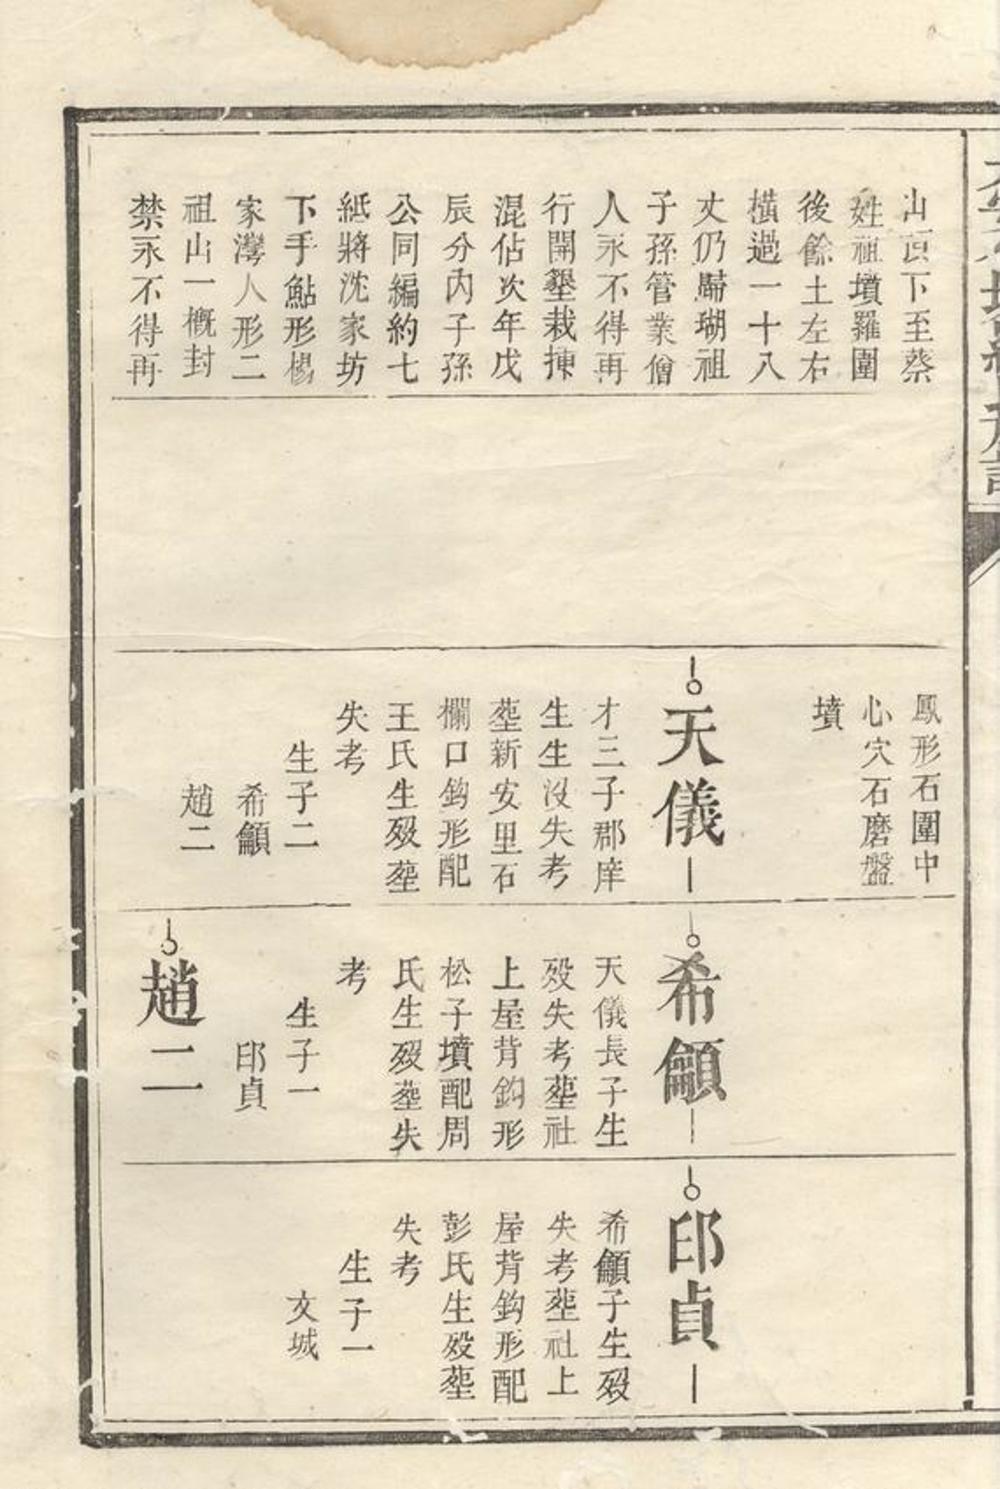 山頂下至蔡
姓祖墳羅圍
後餘土左右
橫過一十八
丈仍歸瑚祖
子孫管業僧
人永不得再
行開墾栽揀
混佔次年戊
辰分內子孫
公同編約七
紙將沈家坊
下手鮎形楊
家灣人形二
祖山一概封
禁永不得再
鳳形石圍中
心穴石磨盤
墳
天儀
才三子郡庠
生生沒失考
塟新安里石
欄口鈎形配
王氏生歿塟
失考
生子二
希籲
趙二
希籲
天儀長子生
歿失考塟社
上屋背鈎形
松子墳配周
氏生歿塟失
考
生子一
邱貞
趙二
邱貞
希籲子生歿
失考塟社上
屋背鈎形配
彭氏生歿塟
失考
生子一
文城